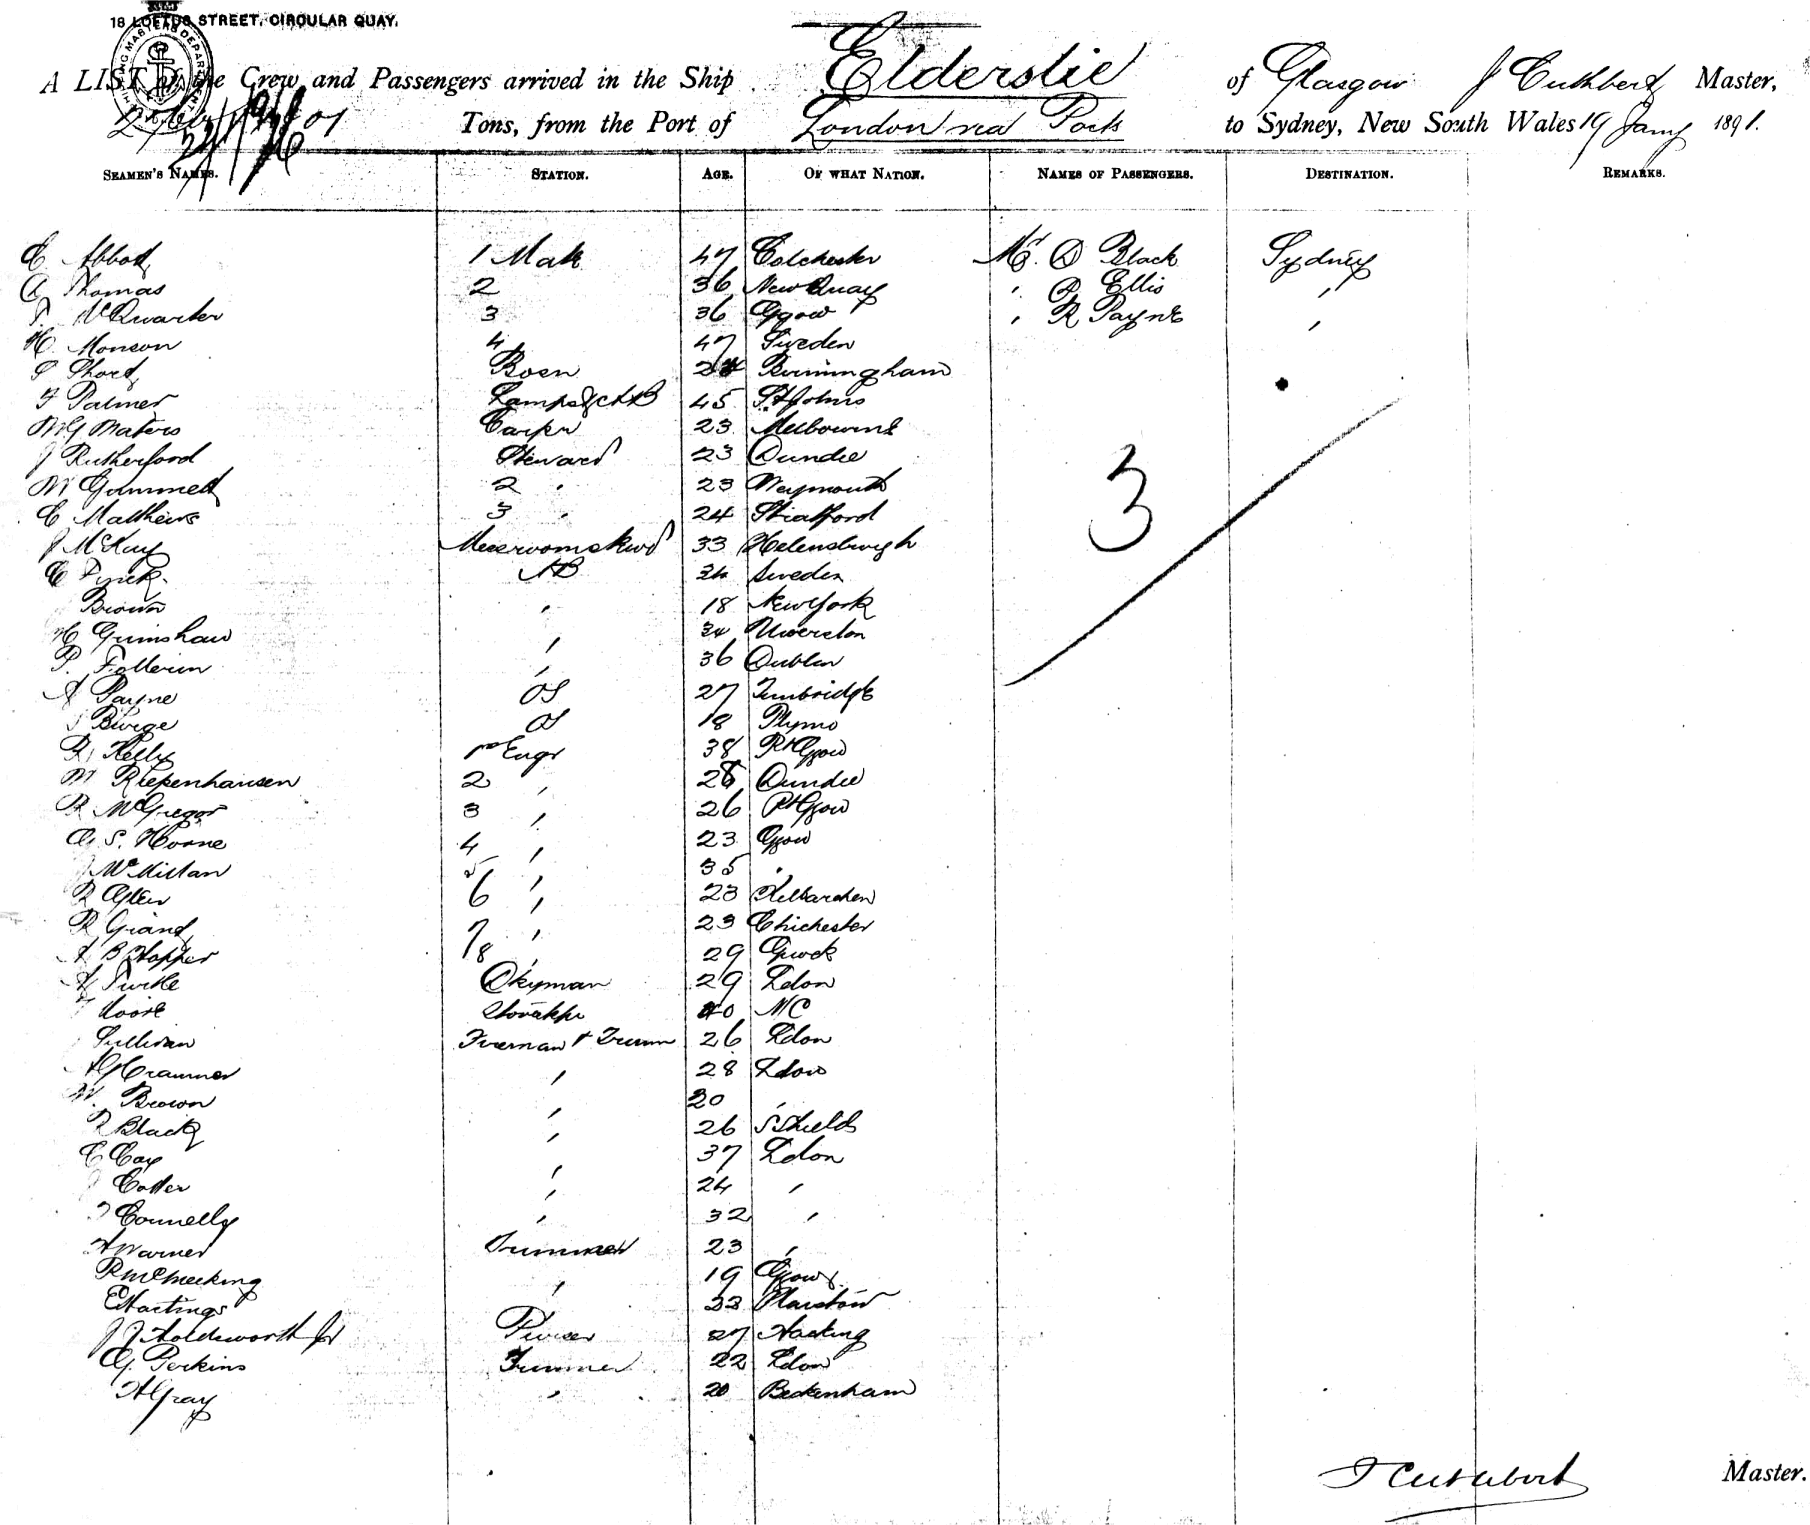 18 LOFTUS STREET, CIRCULAR QUAY.
A LIST of the Crew and Passengers arrived in the Ship Elderslie of Glasgow J Cuthbert Master,
Tons, from the Port of London via Ports to Sydney, New South Wales 19 Jany 1891.
SEAMEN'S NAMES. STATION. AGE. OF WHAT NATION. NAMES OF PASSENGERS. DESTINATION. REMARKS.
C Abbott 1 Mate 47 Colchester Mr. D Black Sydney
A Thomas 2 36 New Quay " Ellis "
McQuarter 3 36 Ggow " R Payne "
H. Monson 4 47 Sweden
S Short Bosn Birmingham
F Palmer Lamps & AB 45 St Johns
Waters Carpr 23 Melbourne
J Rutherford Steward 23 Dundee
W Gammell 2 " 23 Weymouth
C Matthews 3 " 24 Stratford
J McKay Messroomstwd 33 Helensburgh
C AB 24 Sweden
Brown " 18 New York
H Grimshaw " 34 Ulverston
P. " 36 Dublin
A Payne OS 27 Tunbridge
S Burge OS 18 Plymo
R Kelly 1st Engr 38 Pt Ggow
W Riepenhausen 2 " Dundee
R McGregor 3 " 26 Pt Ggow
A. S. Horne 4 " 23 Ggow
J McMillan 5 " 35 "
R Glen 6 " 23 Kilbarchan
R Grant 7 " 23 Chichester
A B Hopper 8 " 29 Gnock
A Turtle Dkyman 29 Ldon
Moore Storekpr 40 NC
Sullivan Fireman & Trimm 26 Ldon
Cranmer " 28 Ldon
W. Brown " 30 "
R Black " 26 S Shields
C Cox " 37 Ldon
J Cotter " 24 "
J Connelly " 32 "
A Warner Trimmer 23 "
R McMeeking " 19 Ggow
E Hastings 22 Plaistow
J J Holdsworth Jr Purser 27 Hasting
G. Perkins Trimmer 22 Ldon
A Gray " 20 Beckenham
3
J Cuthbert Master.